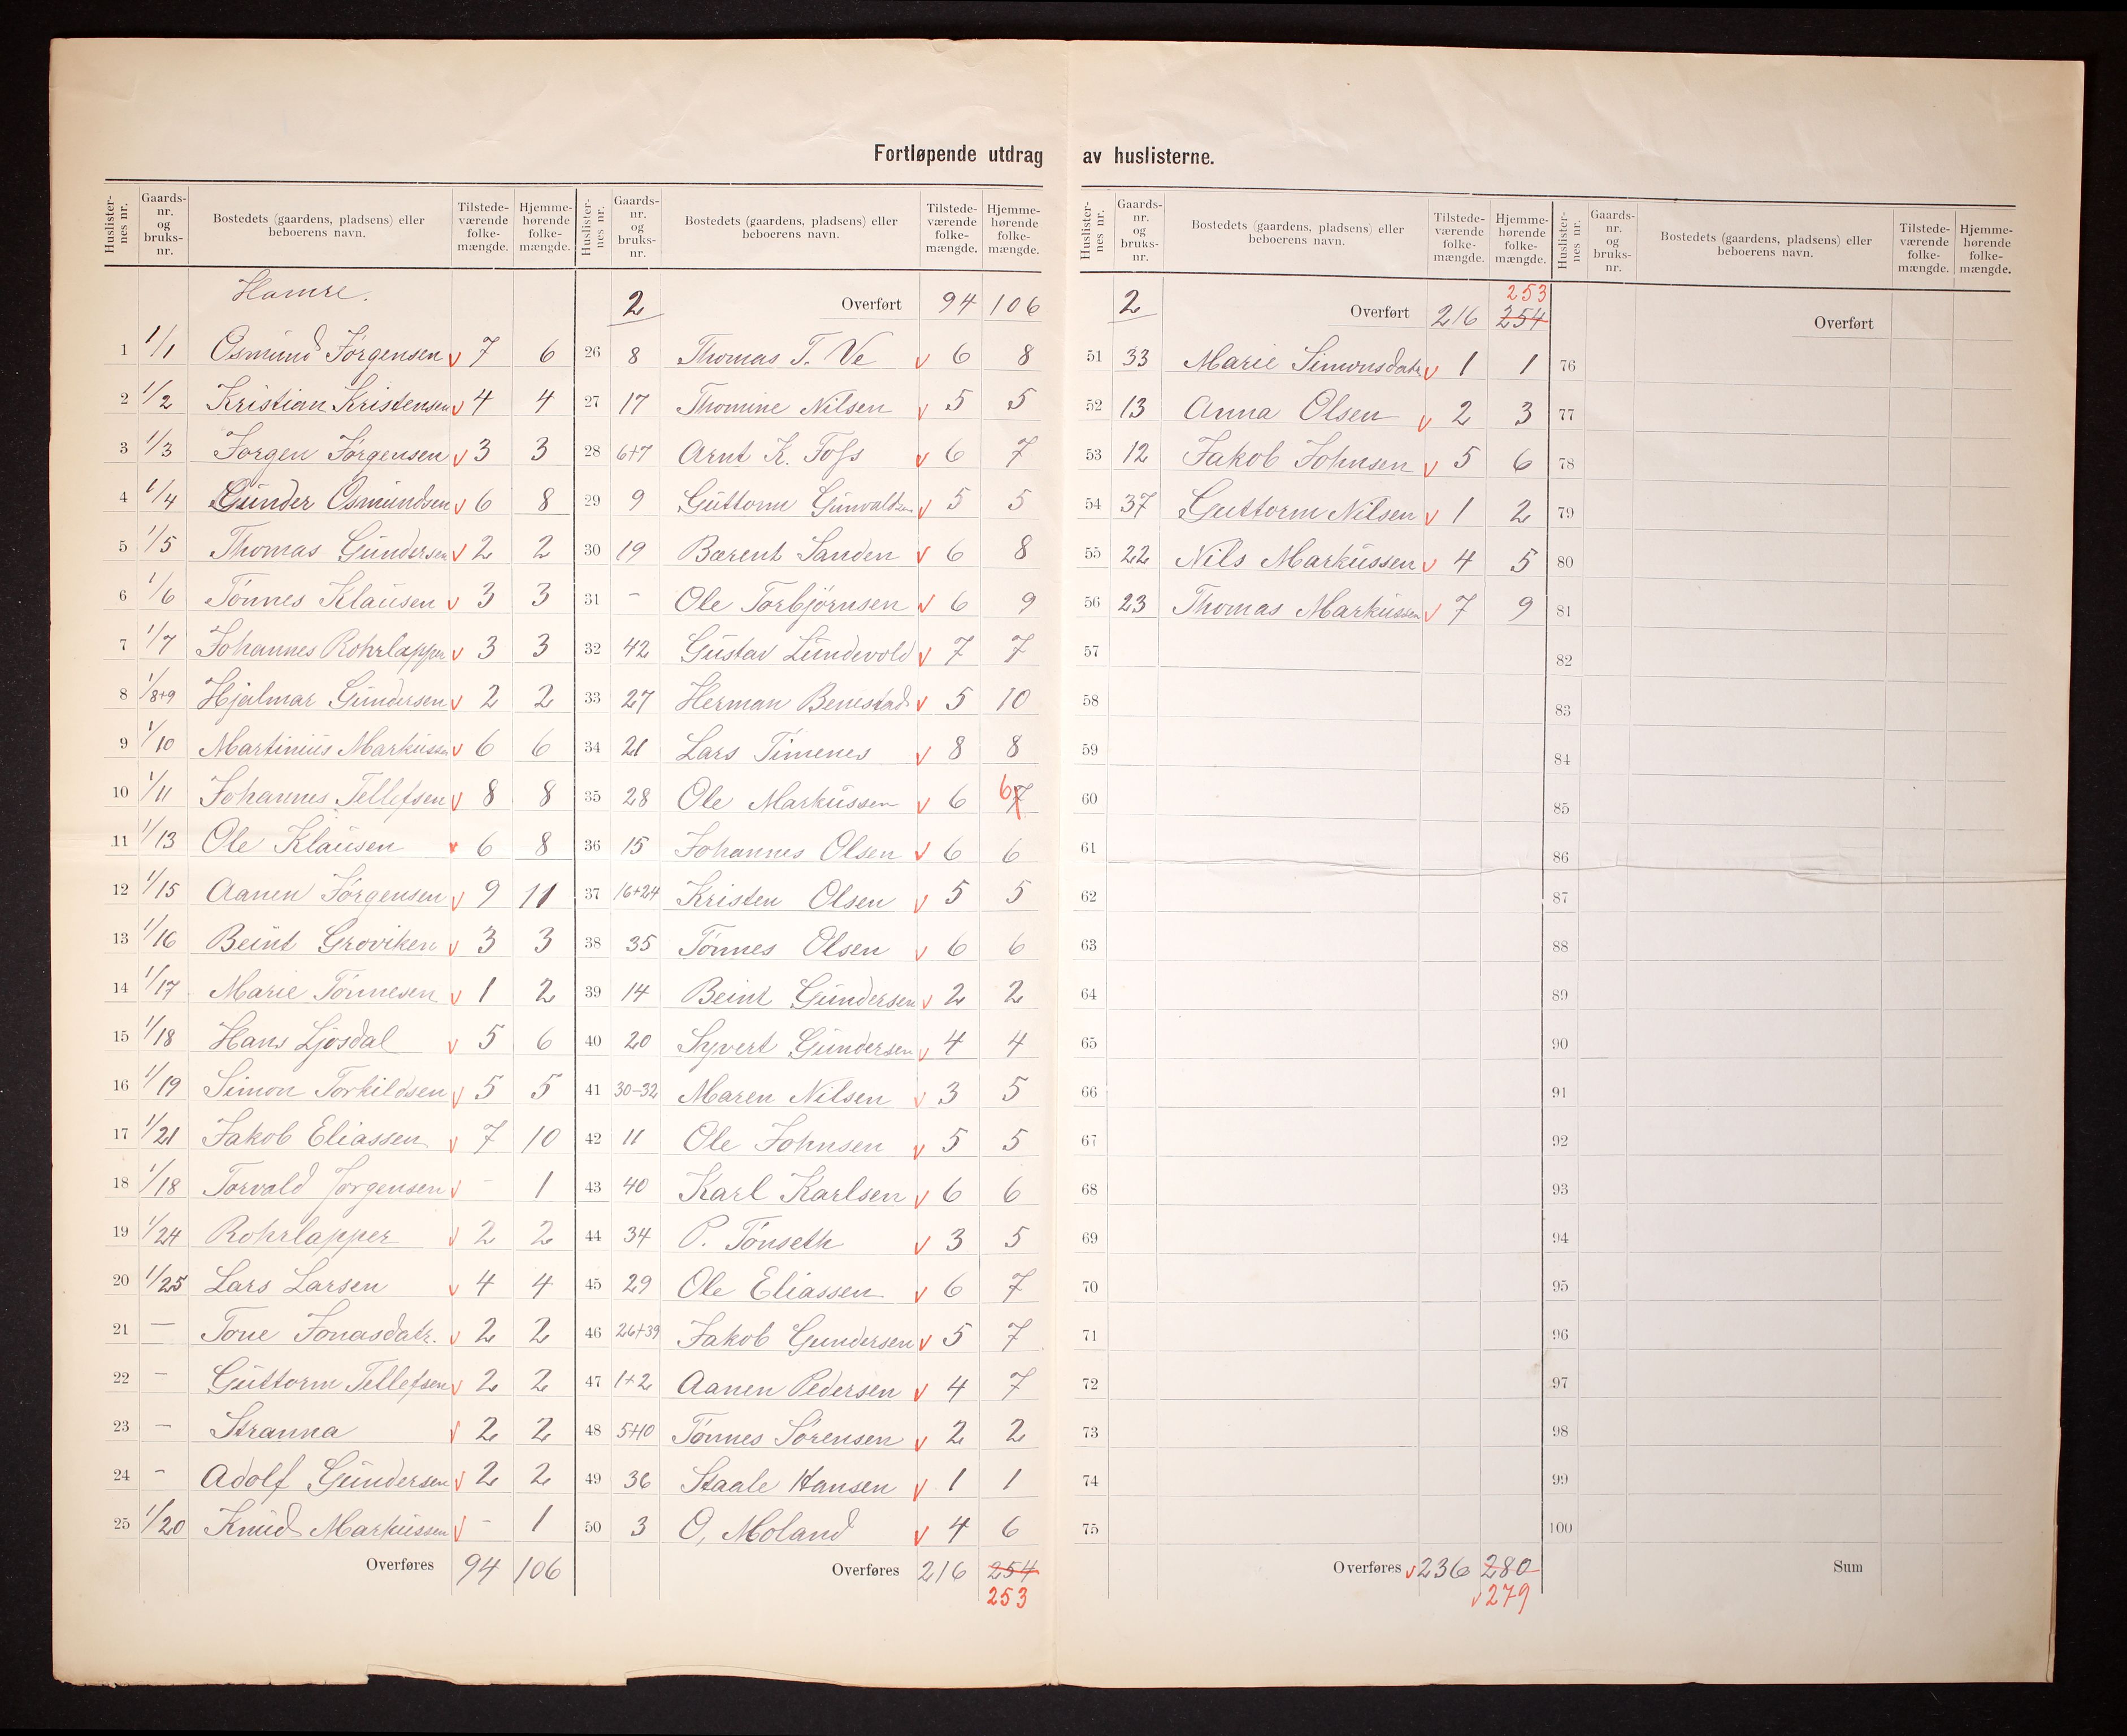 Fortløpende utdrag av huslisterne.
Huslister-nes nr. Gaards-nr. og bruks-nr. Bostedets (gaardens, pladsens) eller beboerens navn. Tilstede-værende folke-mængde. Hjemme-hørende folke-mængde.
Hamre.
1 1/1 Osmund Jørgensen v 7 6
2 1/2 Kristian Kristensen v 4 4
3 1/3 Jørgen Jørgensen v 3 3
4 1/4 Gunder Osmundsen v 6 8
5 1/5 Thomas Gundersen v 2 2
6 1/6 Tönnes Klausen v 3 3
7 1/7 Johannes Rohrlapper v 3 3
8 1/8+9 Hjalmar Gundersen v 2 2
9 1/10 Martinius Markussen v 6 6
10 1/11 Johannes Tellefsen v 8 8
11 1/13 Ole Klausen v 6 8
12 1/15 Aanen Jørgensen v 9 11
13 1/16 Beint Groviken v 3 3
14 1/17 Marie Tönnesen v 1 2
15 1/18 Hans Ljosdal v 5 6
16 1/19 Simon Torkildsen v 5 5
17 1/21 Jakob Eliassen v 7 10
18 1/18 Torvald Jørgensen v - 1
19 1/24 Rohrlapper v 2 2
20 1/25 Lars Larsen v 4 4
21 — Tone Jonasdatr. v 2 2
22 — Guttorm Tellefsen v 2 2
23 — Stranna v 2 2
24 - Adolf Gundersen v 2 2
25 1/20 Knud Markussen v - 1
Overføres 94 106
Huslister-nes nr. Gaards-nr. og bruks-nr. Bostedets (gaardens, pladsens) eller beboerens navn. Tilstede-værende folke-mængde. Hjemme-hørende folke-mængde.
2 Overført 94 106
26 8 Thomas T. Ve v 6 8
27 17 Thomine Nilsen v 5 5
28 6+7 Arnt K. Foss v 6 7
29 9 Guttorm Gunvaldsen v 5 5
30 19 Bærent Sanden v 6 8
31 - Ole Torbjørnsen v 6 9
32 42 Gustav Lundevold v 7 7
33 27 Herman Benestad v 5 10
34 21 Lars Timenes v 8 8
35 28 Ole Markussen v 6 6 7
36 15 Johannes Olsen v 6 6
37 16+24 Kristen Olsen v 5 5
38 35 Tönnes Olsen v 6 6
39 14 Beint Gundersen v 2 2
40 20 Syvert Gundersen v 4 4
41 30-32 Maren Nilsen v 3 5
42 11 Ole Johnsen v 5 5
43 40 Karl Karlsen v 6 6
44 34 P. Tönseth v 3 5
45 29 Ole Eliassen v 6 7
46 26+39 Jakob Gundersen v 5 7
47 1+2 Aanen Pedersen v 4 7
48 5+10 Tönnes Sørensen v 2 2
49 36 Staale Hansen v 1 1
50 3 O. Moland v 4 6
Overføres 216 254
253
Huslister-nes nr. Gaards-nr. og bruks-nr. Bostedets (gaardens, pladsens) eller beboerens navn. Tilstede-værende folke-mængde. Hjemme-hørende folke-mængde.
253
2 Overført 216 254
51 33 Marie Simonsdatr v 1 1
52 13 Anna Olsen v 2 3
53 12 Jakob Johnsen v 5 6
54 37 Guttorm Nilsen v 1 2
55 22 Nils Markussen v 4 5
56 23 Thomas Markussen v 7 9
57
58
59
60
61
62
63
64
65
66
67
68
69
70
71
72
73
74
75
Overføres v 236 280
v 279
Huslister-nes nr. Gaards-nr. og bruks-nr. Bostedets (gaardens, pladsens) eller beboerens navn. Tilstede-værende folke-mængde. Hjemme-hørende folke-mængde.
Overført
76
77
78
79
80
81
82
83
84
85
86
87
88
89
90
91
92
93
94
95
96
97
98
99
100
Sum